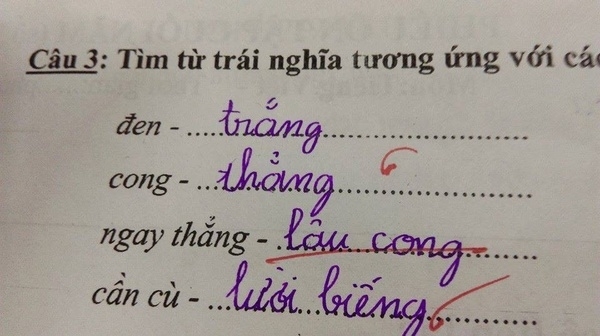 Câu 3: Tìm từ trái nghĩa tương ứng với các
đen - .....trắng..............................
cong - ...thẳng............................
ngay thẳng - .lâu cong..........
cần cù - ...lười biếng................